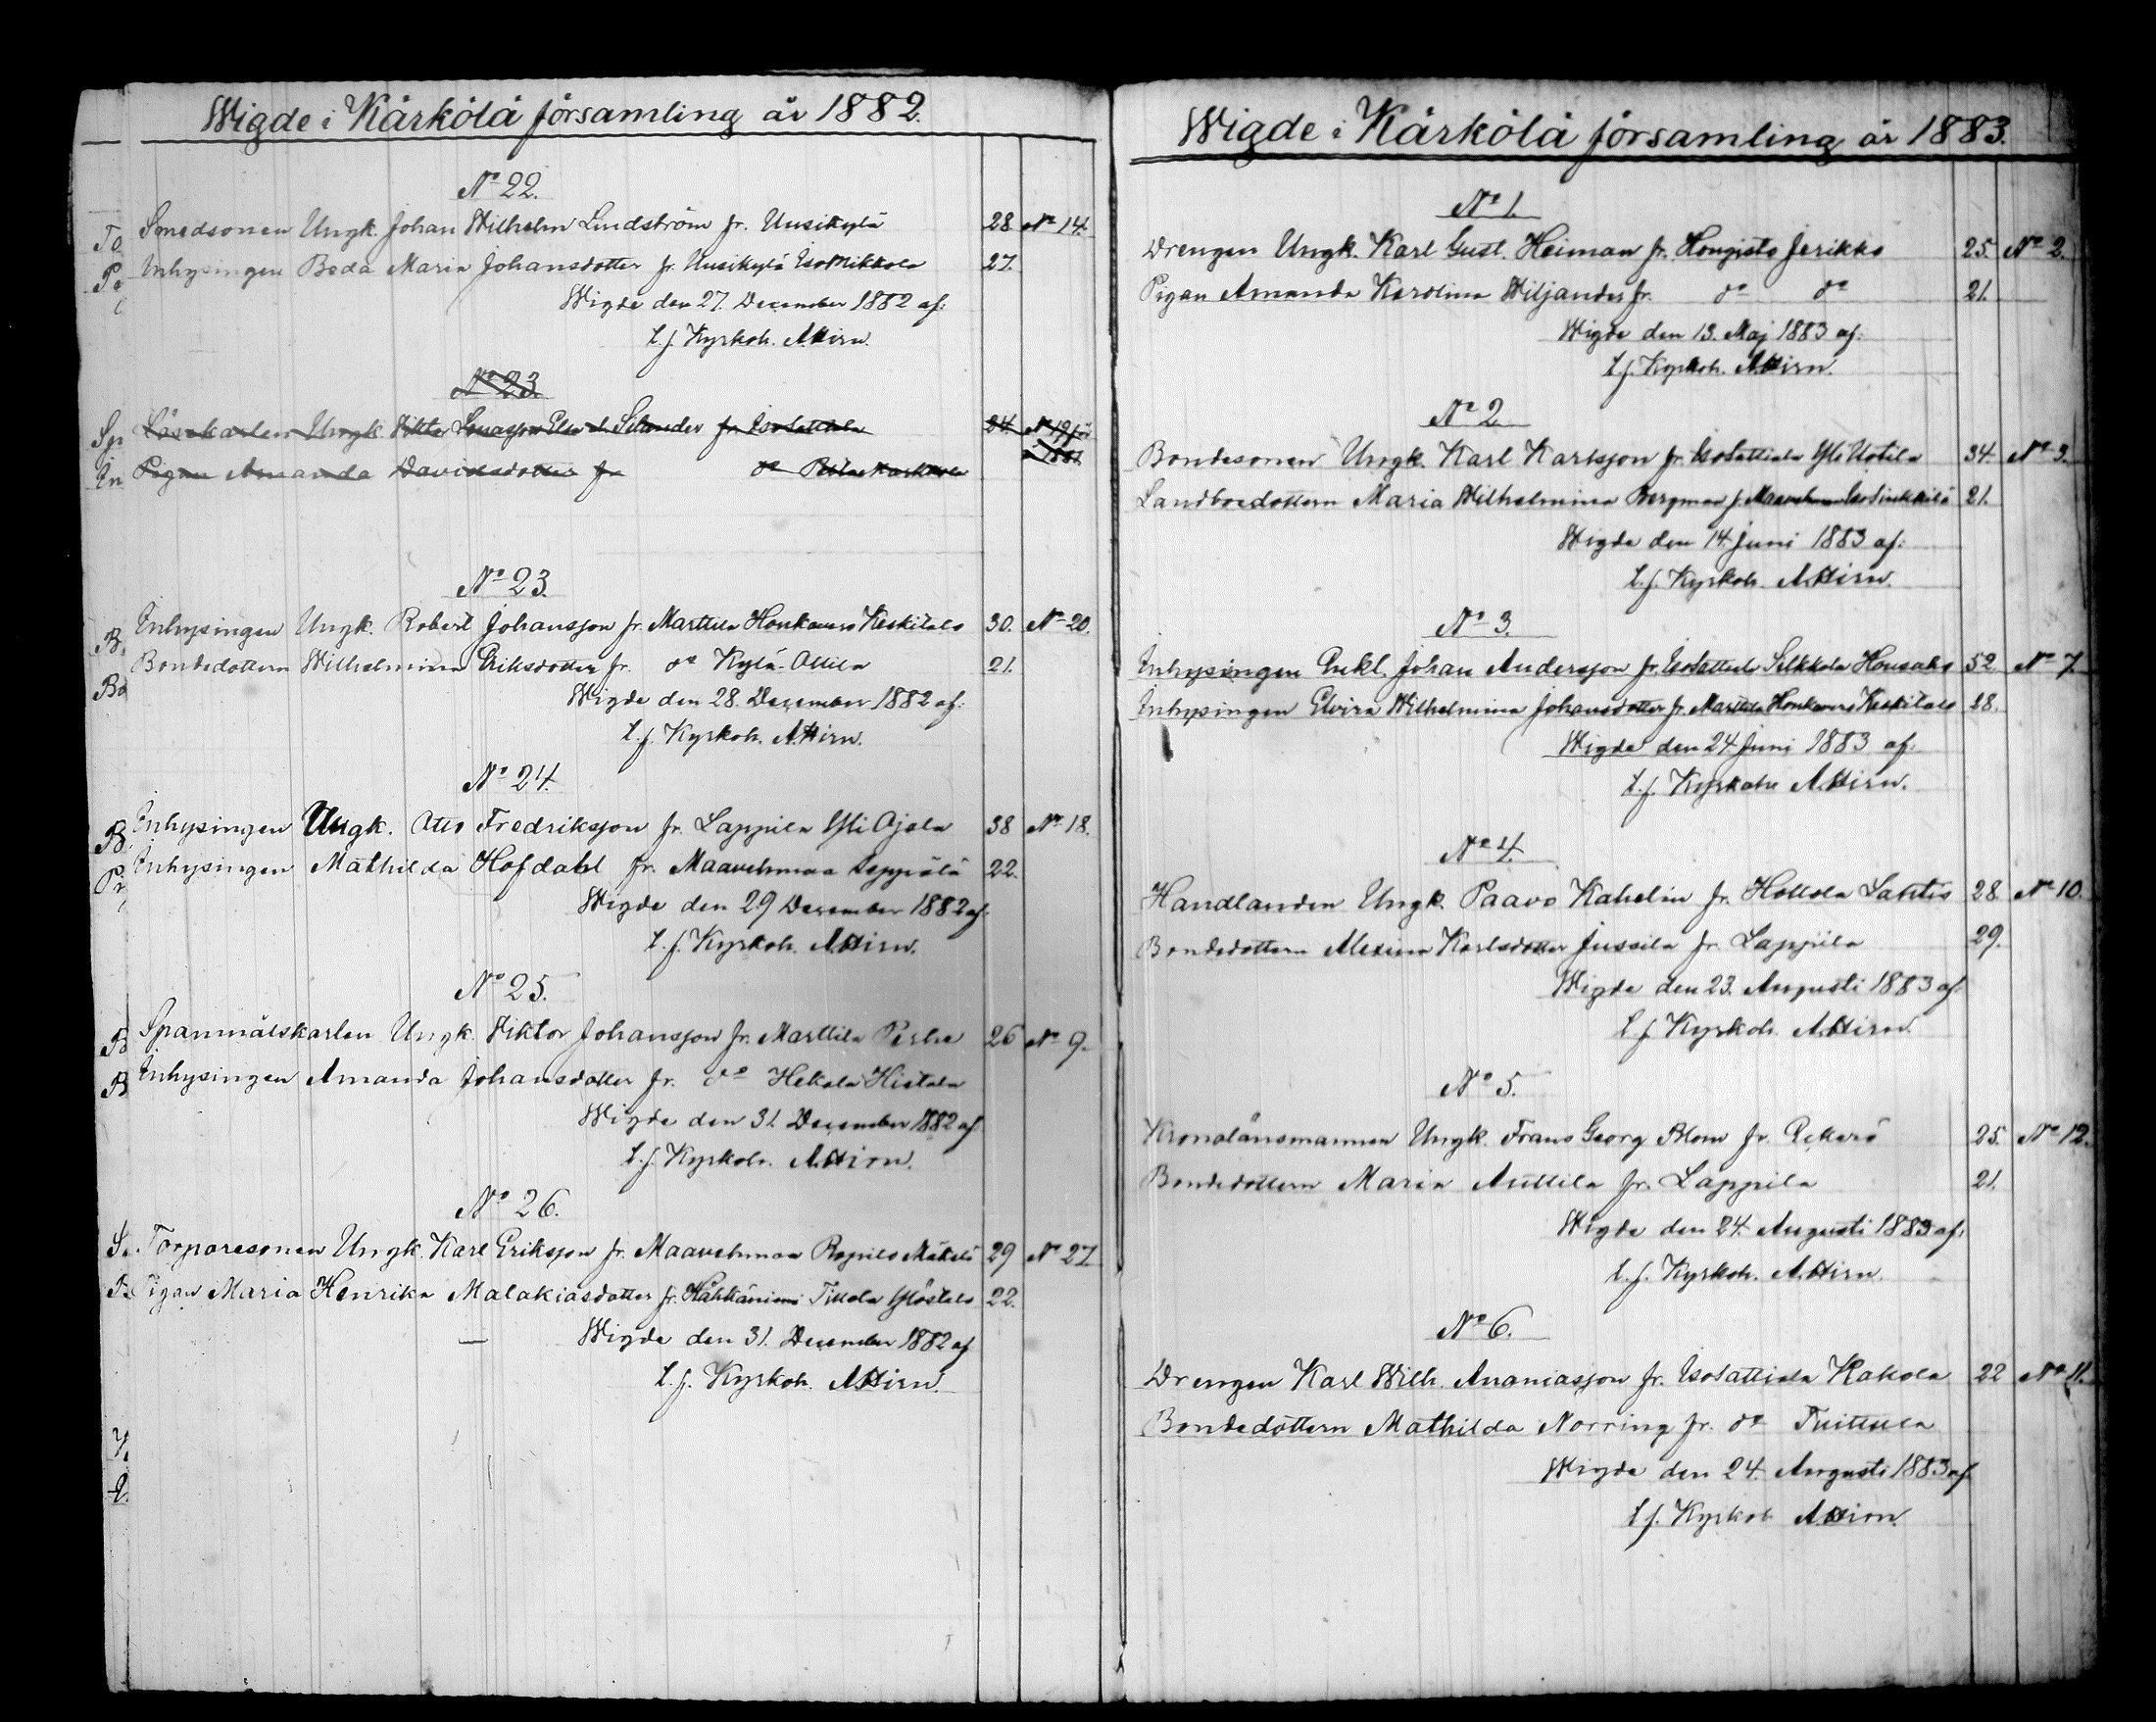 Wigde i Kärkölä församling år 1882.
N° 22.
Smedsonen Ungk. Johan Wilhelm Lindström fr. Uusikylä 28 N° 14.
Inhysingen Beda Maria Johansdotter fr. Uusikylä IsoMikkola 27.
Wigde den 27. December 1882 af:
t.f. Kyrkoh. A. Hirn.
N° 23.
Löskarlen Ungk. Viktor Selander fr. IsoSattiala 24. N° 19 för
Pigan Amanda Davidsdotter fr d° å 1881
N° 23.
Inhysingen Ungk. Robert Johansson fr. Marttila Honkavuo Keskitalo 30. N° 20.
Bondedottern Wilhelmina Eriksdotter fr. d° Kylä-Ollila 21.
Wigde den 28. December 1882 af:
t.f. Kyrkoh. A. Hirn.
N° 24.
Inhysingen Ungk. Otto Fredriksson fr. Lappila Yli Ojala 38 N° 18.
Inhysingen Mathilda Hofdahl fr. Maavehmaa Seppälä 22.
Wigde den 29 December 1882 af:
t.f. Kyrkoh. A. Hirn.
N° 25.
Spanmålskarlen Ungk. Viktor Johansson fr. Marttila Perhe 26 N° 9.
Inhysingen Amanda Johansdotter fr. d° Hekala Histala
Wigde den 31. December 1882 af:
t.f. Kyrkoh. A. Hirn.
N° 26.
Torparesonen Ungk. Karl Eriksson fr. Maavehmaa Ropilo Mäkelä 29 N° 27
Pigan Maria Henrika Malakiasdotter fr. Hähkäniemi Tillola Ylöstalo 22.
Wigde den 31. December 1882 af
t.f. Kyrkoh. A. Hirn.
Wigde i Kärkölä församling år 1883.
N° 1.
Drengen Ungk. Karl Gust. Heiman fr. Hongisto Jerikko 25. N° 2.
Pigan Amanda Karolina Wiljander fr. d° d° 21.
Wigde den 13. Maj 1883 af:
t.f. Kyrkoh. A. Hirn.
N° 2
Bondesonen Ungk. Karl Karlsson fr. IsoSattiala Yli Uotila 34. N° 3.
Landboedottern Maria Wilhelmina Bergman fr. Maavehmaa IsoSinkkilä 21.
Wigde den 14. Juni 1883 af:
t.f. Kyrkoh. A. Hirn.
N° 3.
Inhysingen Enkl. Johan Andersson fr. IsoSattiala Selkkola Housako 52 N° 7
Inhysingen Elvira Wilhelmina Johansdotter fr. Marttila Honkavuo Keskitalo 28.
Wigde den 24 Juni 1883 af:
t.f. Kyrkoh A. Hirn.
N° 4.
Handlanden Ungk. Paavo Kahelin fr. Hollola Lahtis 28. N° 10.
Bondedottern Alexina Karlsdotter Jussila fr. Lappila 29.
Wigde den 23. Augusti 1883 af:
t.f. Kyrkoh. A. Hirn.
N° 5.
Kronolänsmannen Ungk. Frans Georg Blom fr. Rekers 25. N° 12.
Bondedottern Maria Anttila fr. Lappila 21.
Wigde den 24. Augusti 1883 af:
t.f. Kyrkoh. A. Hirn.
N° 6.
Drengen Karl Wilh. Ananiasson fr. IsoSattiala Kakola 22 N° 11.
Bondedottern Mathilda Norring fr. d° Tuittula
Wigde den 24. Augusti 1883 af
t.f. Kyrkoh A. Hirn.